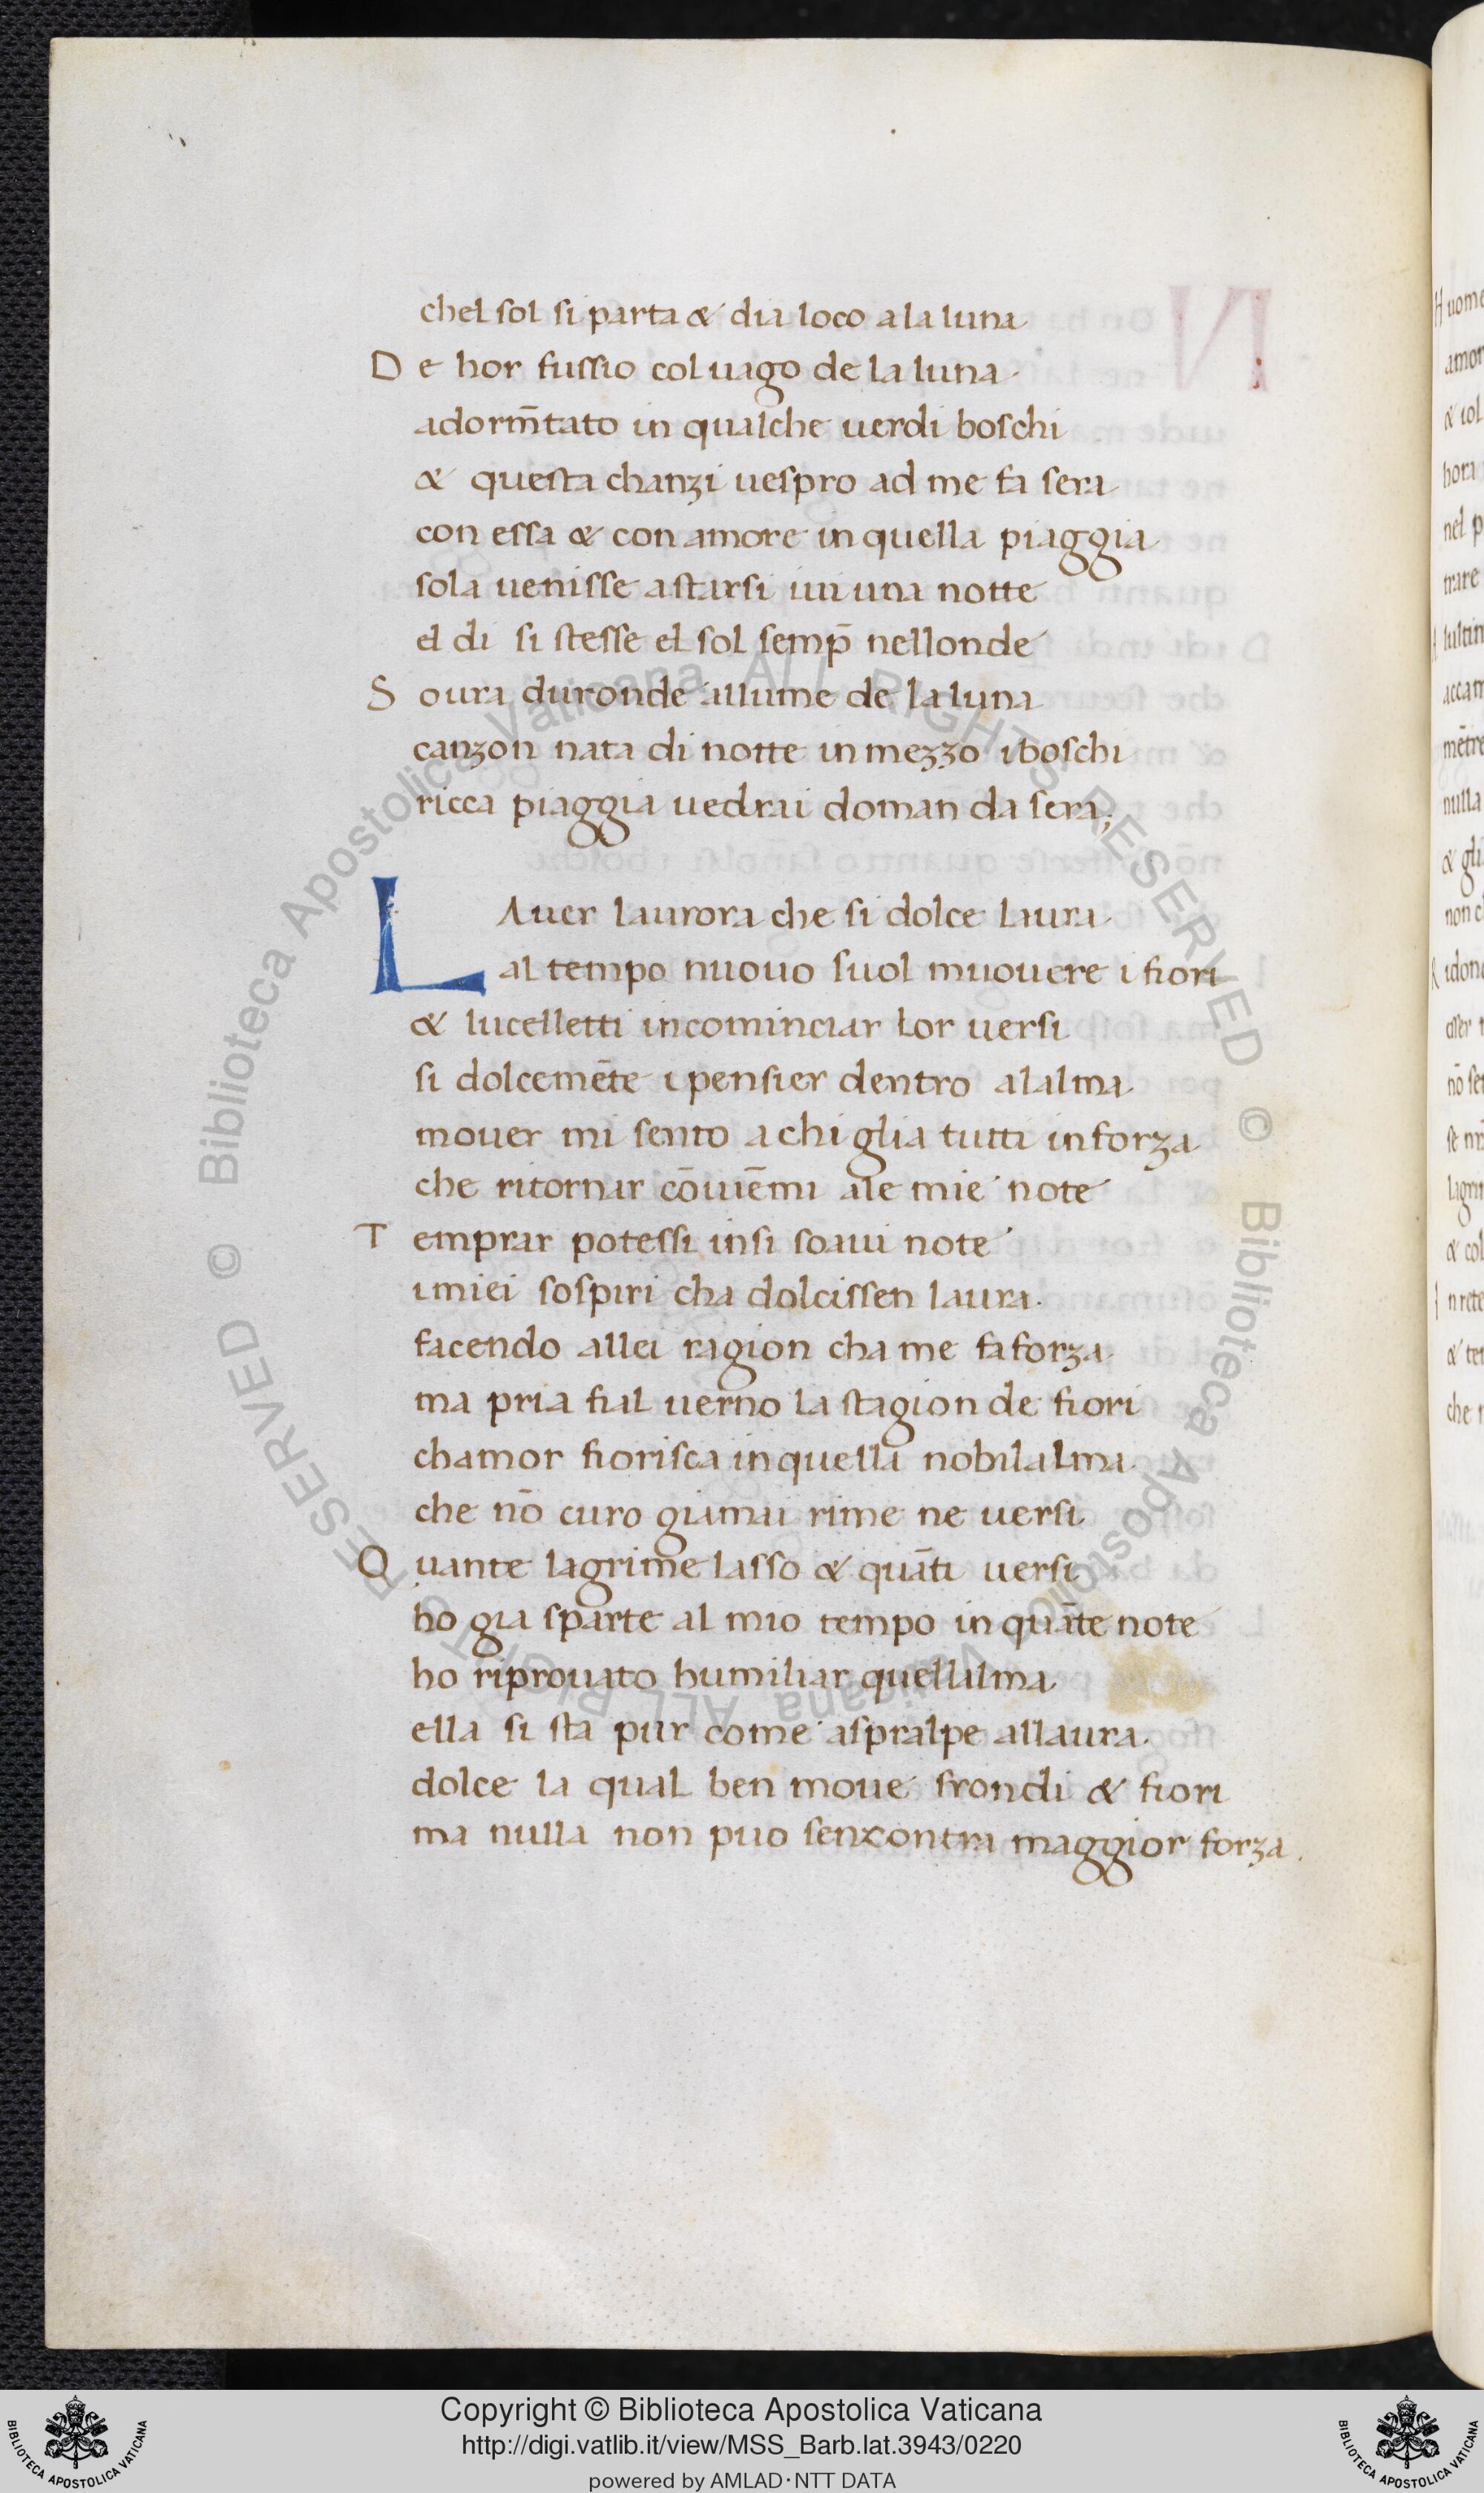 chel sol si parta & dia loco a la luna
D e hor fussio col uago de la luna.
adorm̄tato in qualche uerdi boschi
& questa chanzi uespro ad me fa sera
con essa & con amore in quella piaggia
sola uenisse a starsi iui una notte
el di si stesse el sol semp̄ nellonde
S oura duronde allume de la luna
canzon nata di notte in mezzo i boschi
ricca piaggia uedrai doman da sera;
L Auer laurora che si dolce laura
al tempo nuouo suol muouere i fiori
& lucelletti incominciar lor uersi
si dolcemēte i pensier dentro a lalma
mouer mi sento a chi glia tutti in forza
che ritornar cōuiēmi ale mie note
T emprar potessi in si soaui note
i miei sospiri cha dolcissen laura.
facendo allei ragion cha me fa forza.
ma pria fial uerno la stagion de fiori
chamor fiorisca in quella nobilalma.
che nō curo giamai rime ne uersi
Q uante lagrime lasso & quāti uersi
ho gia sparte al mio tempo in quāte note
ho riprouato humiliar quellalma
ella si sta pur come aspralpe allaura.
dolce la qual ben moue frondi & fiori
ma nulla non puo sencontra maggior forza.
Copyright © Biblioteca Apostolica Vaticana
http://digi.vatlib.it/view/MSS_Barb.lat.3943/0220
powered by AMLAD·NTT DATA
BIBLIOTECA APOSTOLICA VATICANA
BIBLIOTECA APOSTOLICA VATICANA
© Biblioteca Apostolica Vaticana ALL RIGHTS RESERVED © Biblioteca Apostolica Vaticana ALL RIGHTS RESERVED